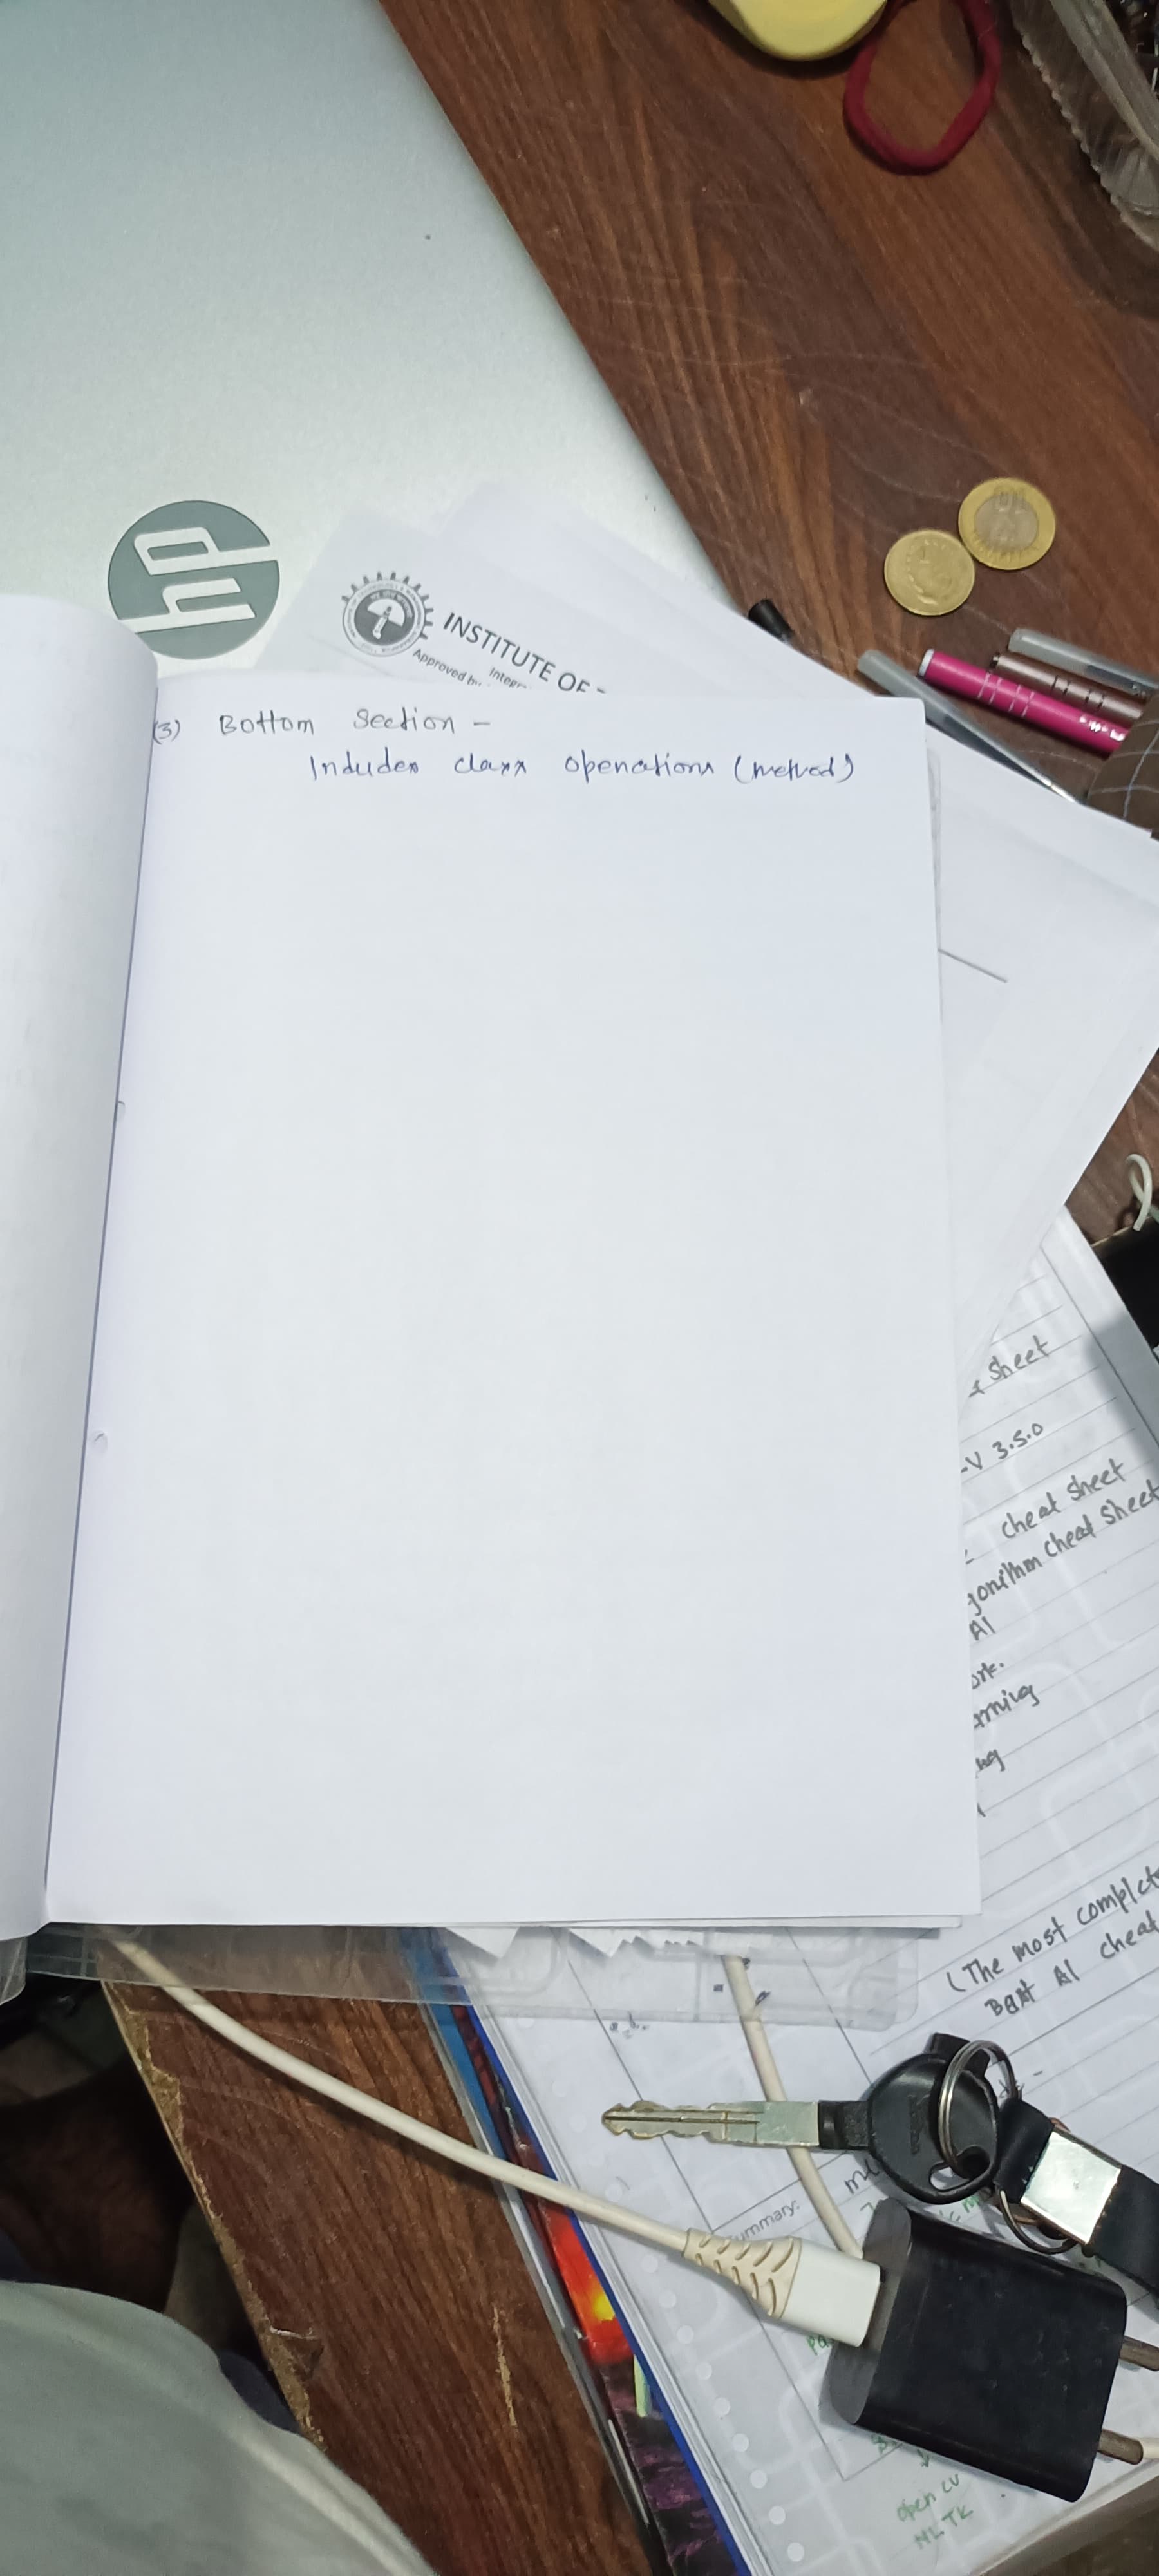 hp
INSTITUTE OF
Approved by
(3) Bottom Section -
Includes class operations (method)
Sheet
-V 3.5.0
cheat sheet
gorithm cheat sheet
AI
ork.
arning
ng
(The most complete
Best AI cheat
ummary:
open cv
NLTK